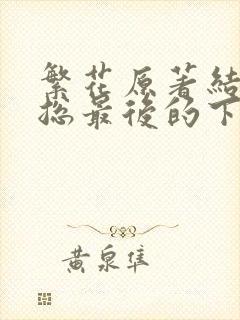 繁花原著結
捴最後的下
黃泉隼